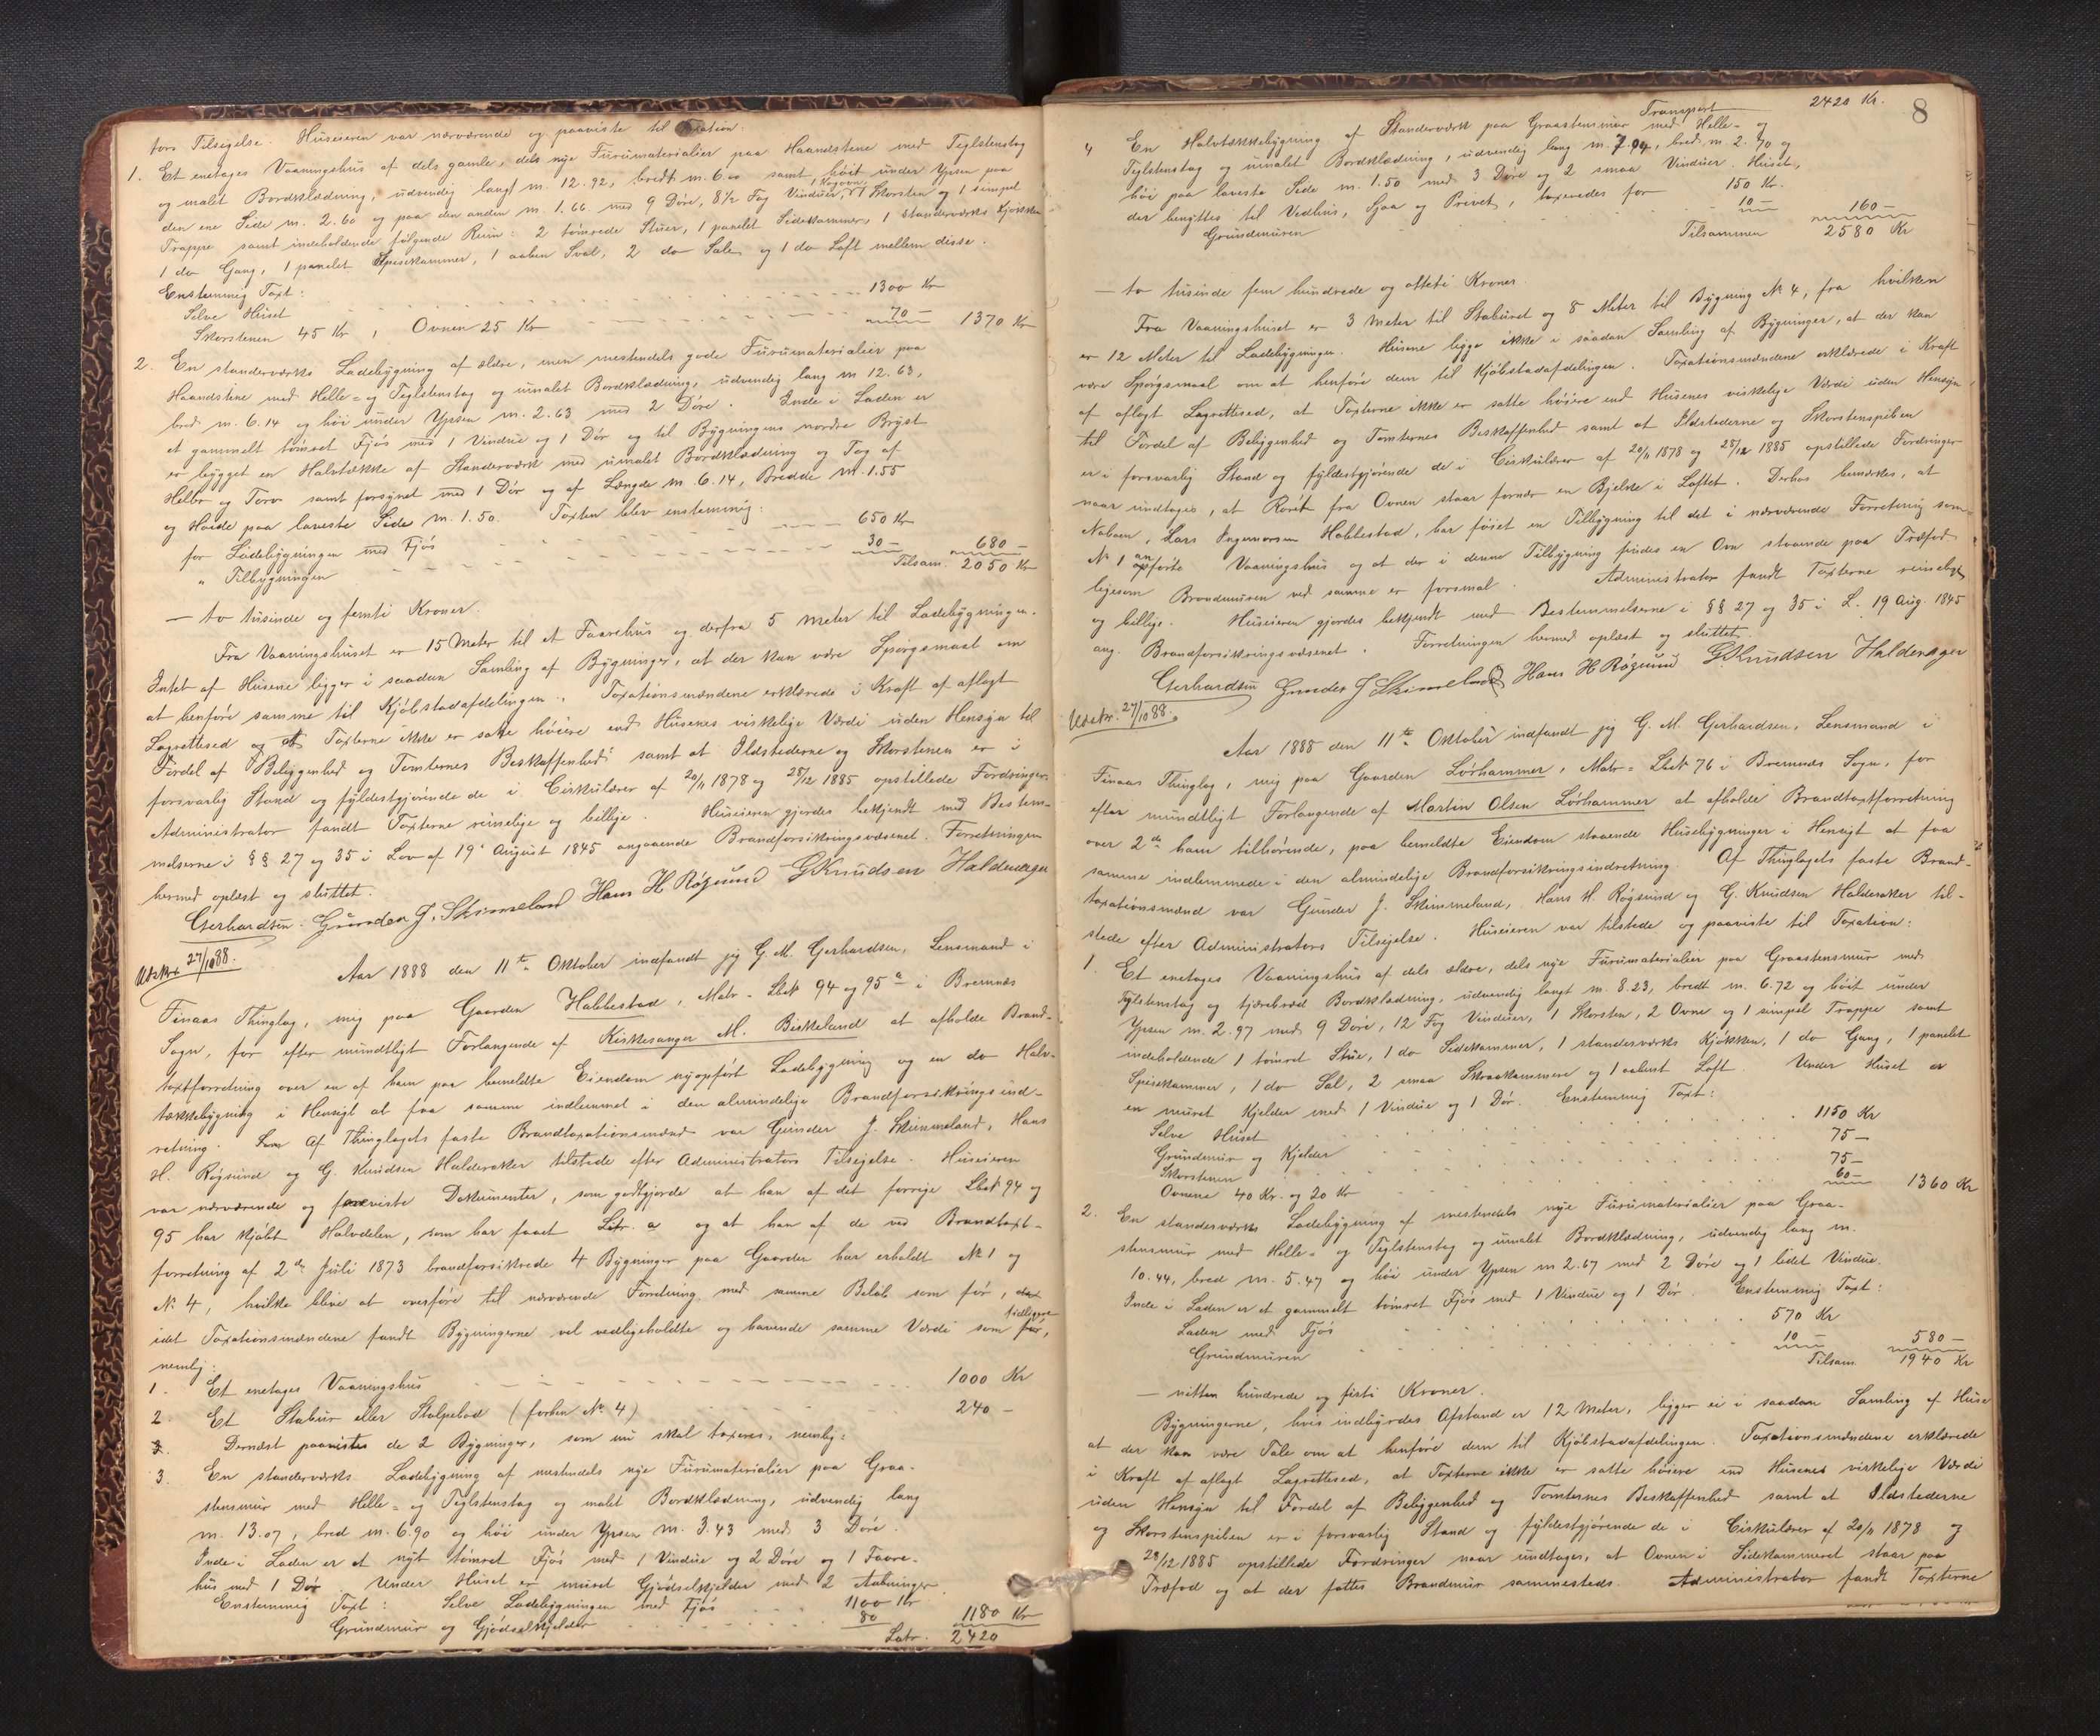 tors Tilsigelse. Huseieren var nærværende og paaviste til Taxation:
1. Et enetages Vaaningshus af dels gamle, dels nye Furumaterialier paa Haandstene med Teglstenstag
og malet Bordklædning, udvendig langt m. 12.92, bredt m. 6.00 samt høit under Ypsen paa
den ene Side m. 2.60 og paa den anden m. 1.66. med 9 Døre, 8½ Fag Vinduer, 1 Kogovn, 1 Skorsten og 1 simpel
Trappe samt indeholdende følgende Rum: 2 tømrede Stuer, 1 panelet Sidekammer, 1 standerværks Kjøkken
1 do Gang, 1 panelet Spisekammer, 1 aaben Sval, 2 do Sale og 1 do Loft mellem disse.
Enstemmig Taxt:
Selve Huset 1300 Kr
Skorstenen 45 Kr, Ovnen 25 Kr 70 — 1370 Kr
2. En standerværks Ladebygning af ældre, men mestendels gode Furumaterialier paa
Haandstene med Helle- og Teglstenstag og umalet Bordklædning, udvendig lang m 12.63,
bred m. 6.14 og høi under Ypsen m. 2.63 med 2 Døre. Inde i Laden er
et gammelt tømret Fjøs med 1 Vindue og 1 Dør og til Bygningens nordre Bryst
er bygget en Halvtække af Standerværk med umalet Bordklædning og Tag af
Heller og Torv samt forsynet med 1 Dør og af Længde m. 6.14, Bredde m. 1.55
og Høide paa laveste Side m. 1.50. Taxten blev enstemmig:
for Ladebygningen med Fjøs 650 Kr
" Tilbygningen 30 — 680 —
Tilsam. 2050 Kr
— to tusinde og femti Kroner.
Fra Vaaningshuset er 15 Meter til et Faarehus og derfra 5 Meter til Ladebygningen.
Intet af Husene ligger i saadan Samling af Bygninger, at der kan være Spørgsmaal om
at henføre samme til Kjøbstadafdelingen. Taxationsmændene erklærede i Kraft af aflagt
Lagrettesed og at Taxterne ikke er satte høiere end Husenes virkelige Værdi uden Hensyn til
Fordel af Beliggenhed og Tomternes Beskaffenhed samt at Ildstederne og Skorstenen er i
forsvarlig Stand og fyldestgjørende de i Cirkulærer af 20/11 1878 og 28/12 1885 opstillede Fordringer.
Administrator fandt Taxterne rimelige og billige. Huseieren gjordes bekjendt med Bestem-
melserne i §§ 27 og 35 i Lov af 19. August 1845 angaaende Brandforsikringsvæsenet. Forretningen
hermed oplæst og sluttet.
Gerhardsen. Gunder J. Skimmeland Hans H Røgsund G Knudsen Halderager
Udskr. 27/10 88.
Aar 1888 den 11te Oktober indfandt jeg G. M. Gerhardsen, Lensmand i
Finaas Thinglag, mig paa Gaarden Habbestad, Matr.- Løbe№ 94 og 95 a i Bremnæs
Sogn, for efter mundtligt Forlangende af Kirkesanger M. Birkeland at afholde Brand-
taxtforretning over en af ham paa bemeldte Eiendom nyopført Ladebygning og en do Halv-
tækkebygning i Hensigt at faa samme indlemmet i den almindelige Brandforsikringsind-
retning. Af Thinglagets faste Brandtaxationsmænd var Gunder J. Skimmeland, Hans
H. Røgsund og G. Knudsen Halderaker tilstede efter Administrators Tilsigelse. Huseieren
var nærværende og foreviste Dokumenter, som godtgjorde at han af det forrige Løb№ 94 og
95 har kjøbt Halvdelen, som har faaet Litr. a og at han af de ved Brandtaxt-
forretning af 2de Juli 1873 brandforsikrede 4 Bygninger paa Gaarden har erholdt № 1 og
№ 4, hvilke blive at overføre til nærværende Forretning med samme Beløb som før,
idet Taxationsmændene fandt Bygningerne vel vedligeholdte og havende samme Værdi som tidligere,
nemlig:
1. Et enetages Vaaningshus 1000 Kr
2. Et Stabur eller Stolpebod (forhen № 4) 240 —
Dernæst paavistes de 2 Bygninger, som nu skal taxeres, nemlig:
3. En standerværks Ladebygning af mestendels nye Furumaterialier paa Graa-
stensmur med Helle- og Teglstenstag og malet Bordklædning, udvendig lang
m. 13.07, bred m. 6.90 og høi under Ypsen m. 3.43 med 3 Døre.
Inde i Laden er et nyt tømret Fjøs med 1 Vindue og 2 Døre og 1 Faare-
hus med 1 Dør. Under Huset er muret Gjødselkjelder med 2 Aabninger.
Enstemmig Taxt: Selve Ladebygningen med Fjøs 1100 Kr
Grundmur og Gjødselkjelder 80 1180 Kr
Latr. 2420
8
Transport 2420 Kr.
4 En Halvtækkebygning af Standerværk paa Graastensmur med Helle- og
Teglstenstag og umalet Bordklædning, udvendig lang m. 7.04, bred m. 2.70 og
høi paa laveste Side m. 1.50 med 3 Døre og 2 smaa Vinduer. Huset,
der benyttes til Vedhus, Sjaa og Privet, taxeredes for 150 Kr.
Grundmuren 10 — 160 —
Tilsammen 2580 Kr
— to tusinde fem hundrede og otteti Kroner.
Fra Vaaningshuset er 3 Meter til Staburet og 8 Meter til Bygning № 4, fra hvilken
er 12 Meter til Ladebygningen. Husene ligge ikke i saadan Samling af Bygninger, at der kan
være Spørgsmaal om at henføre dem til Kjøbstadafdelingen. Taxationsmændene erklærede i Kraft
af aflagt Lagrettesed, at Taxterne ikke er satte høiere end Husenes virkelige Værdi uden Hensyn
til Fordel af Beliggenhed og Tomternes Beskaffenhed samt at Ildstederne og Skorstenspiben
er i forsvarlig Stand og fyldestgjørende de i Cirkulærer af 20/11 1878 og 28/12 1885 opstillede Fordringer
naar undtages, at Røret fra Ovnen staar fornær en Bjelke i Loftet. Derhos bemærkes, at
Naboen, Lars Ingemorsen Habbestad, har føiet en Tilbygning til det i nærværende Forretning som
№ 1 anførte Vaaningshus og at der i denne Tilbygning findes en Ovn staaende paa Træfod
ligesom Brandmuren ved samme er forsmal. Administrator fandt Taxterne rimelige
og billige. Huseieren gjordes bekjendt med Bestemmelserne i §§ 27 og 35 i L. 19 Aug. 1845
ang. Brandforsikringsvæsenet. Forretningen hermed oplæst og sluttet.
Gerhardsen Gunder J Skimmeland Hans H Røgsund G Knudsen Halderager
Udskr. 27/10 88.
Aar 1888 den 11te Oktober indfandt jeg G. M. Gerhardsen, Lensmand i
Finaas Thinglag, mig paa Gaarden Lørhammer, Matr.- Løb№ 76 i Bremnæs Sogn, for
efter mundtligt Forlangende af Martin Olsen Lørhammer at afholde Brandtaxtforretning
over 2de ham tilhørende, paa bemeldte Eiendom staaende Husebygninger i Hensigt at faa
samme indlemmede i den almindelige Brandforsikringsindretning. Af Thinglagets faste Brand-
taxationsmænd var Gunder J. Skimmeland, Hans H. Røgsund og G. Knudsen Halderaker til-
stede efter Administrators Tilsigelse. Huseieren var tilstede og paaviste til Taxation:
1. Et enetages Vaaningshus af dels ældre, dels nye Furumaterialier paa Graastensmur med
Teglstenstag og tjærebræd Bordklædning, udvendig langt m. 8.23, bredt m. 6.72 og høit under
Ypsen m. 2.97 med 9 Døre, 12 Fag Vinduer, 1 Skorsten, 2 Ovne og 1 simpel Trappe samt
indeholdende 1 tømret Stue, 1 do Sidekammer, 1 standerværks Kjøkken, 1 do Gang, 1 panelet
Spisekammer, 1 do Sal, 2 smaa Skraakammere og 1 aabent Loft. Under Huset er
en muret Kjelder med 1 Vindue og 1 Dør. Enstemmig Taxt:
Selve Huset 1150 Kr
Grundmur og Kjelder 75 —
Skorstenen 75 —
Ovnene 40 Kr. og 20 Kr 60 — 1360 Kr
2. En standerværks Ladebygning af mestendels nye Furumaterialier paa Graa-
stensmur med Helle- og Teglstenstag og umalet Bordklædning, udvendig lang m.
10.44, bred m. 5.47 og høi under Ypsen m 2.67 med 2 Døre og 1 lidet Vindue.
Inde i Laden er et gammelt tømret Fjøs med 1 Vindue og 1 Dør. Enstemmig Taxt:
Laden med Fjøs 570 Kr
Grundmuren 10 — 580 —
Tilsam. 1940 Kr
— nitten hundrede og firti Kroner.
Bygningerne, hvis indbyrdes Afstand er 12 Meter, ligger ei i saadan Samling af Huse
at der kan være Tale om at henføre dem til Kjøbstadafdelingen. Taxationsmændene erklærede
i Kraft af aflagt Lagrettesed, at Taxterne ikke er satte høiere end Husenes virkelige Værdi
uden Hensyn til Fordel af Beliggenhed og Tomternes Beskaffenhed samt at Ildstederne
og Skorstenspiben er i forsvarlig Stand og fyldestgjørende de i Cirkulærer af 20/11 1878 og
28/12 1885 opstillede Fordringer naar undtages, at Ovnen i Sidekammeret staar paa
Træfod og at der fattes Brandmur sammesteds. Administrator fandt Taxterne